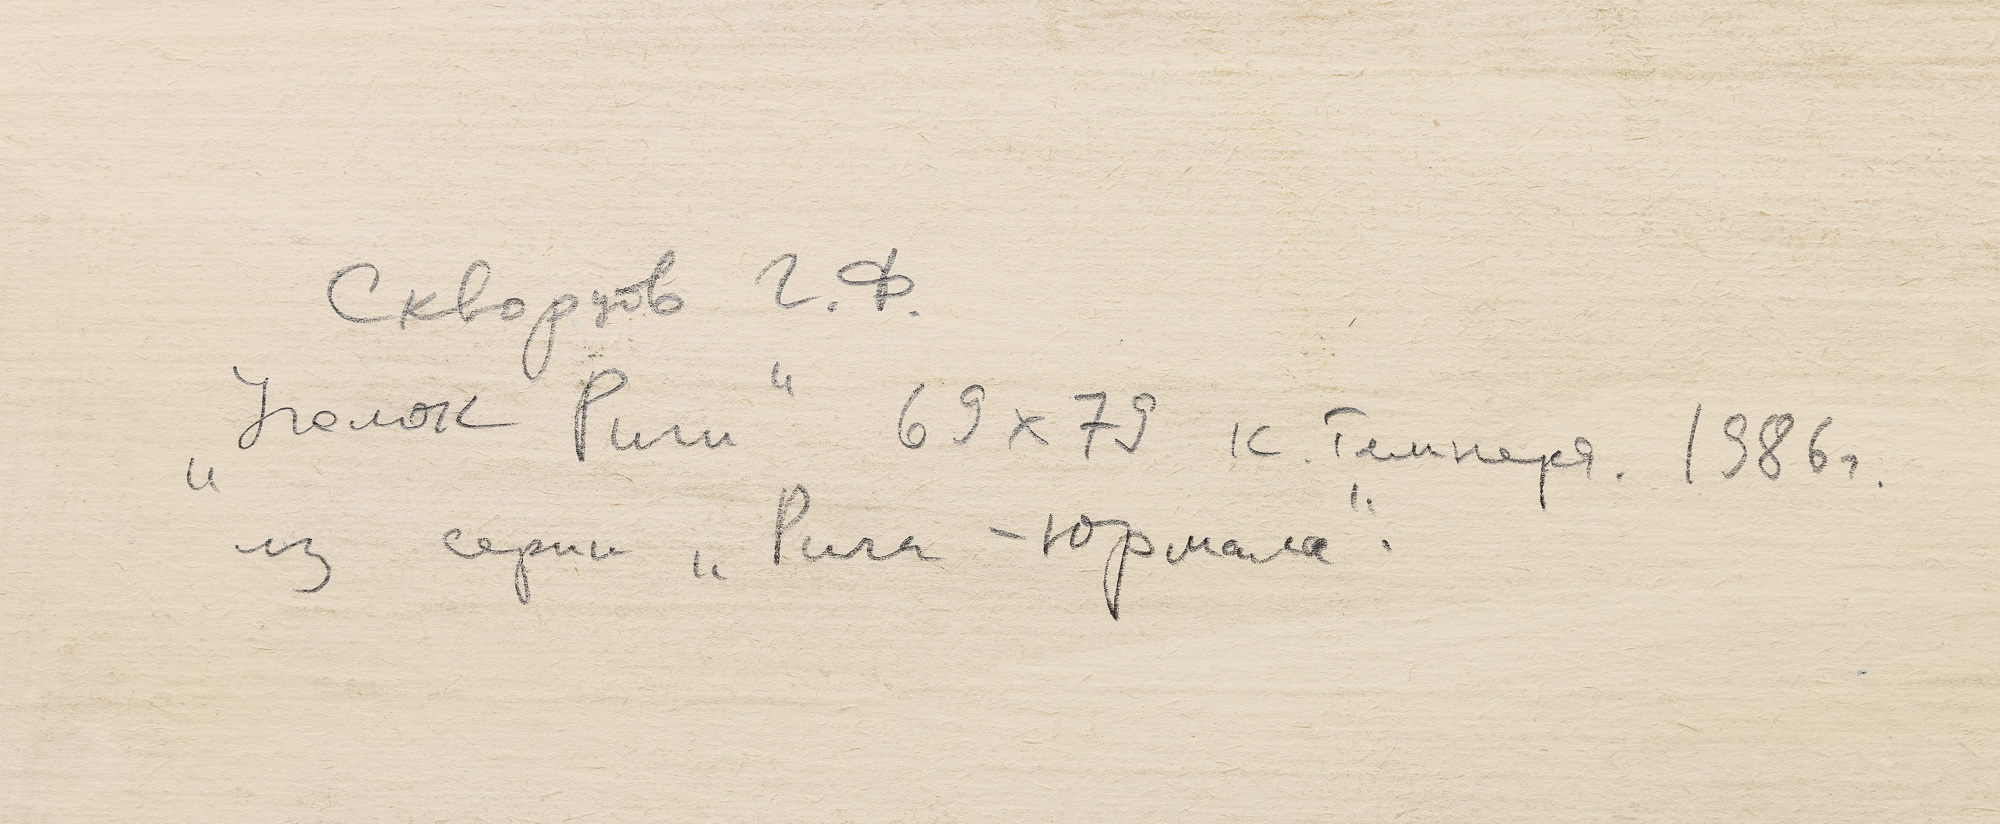 Скворцов Г.Ф.
„Уголок Риги“ 69х79 к. Темпера. 1986г.
из серии „Рига-Юрмала“.